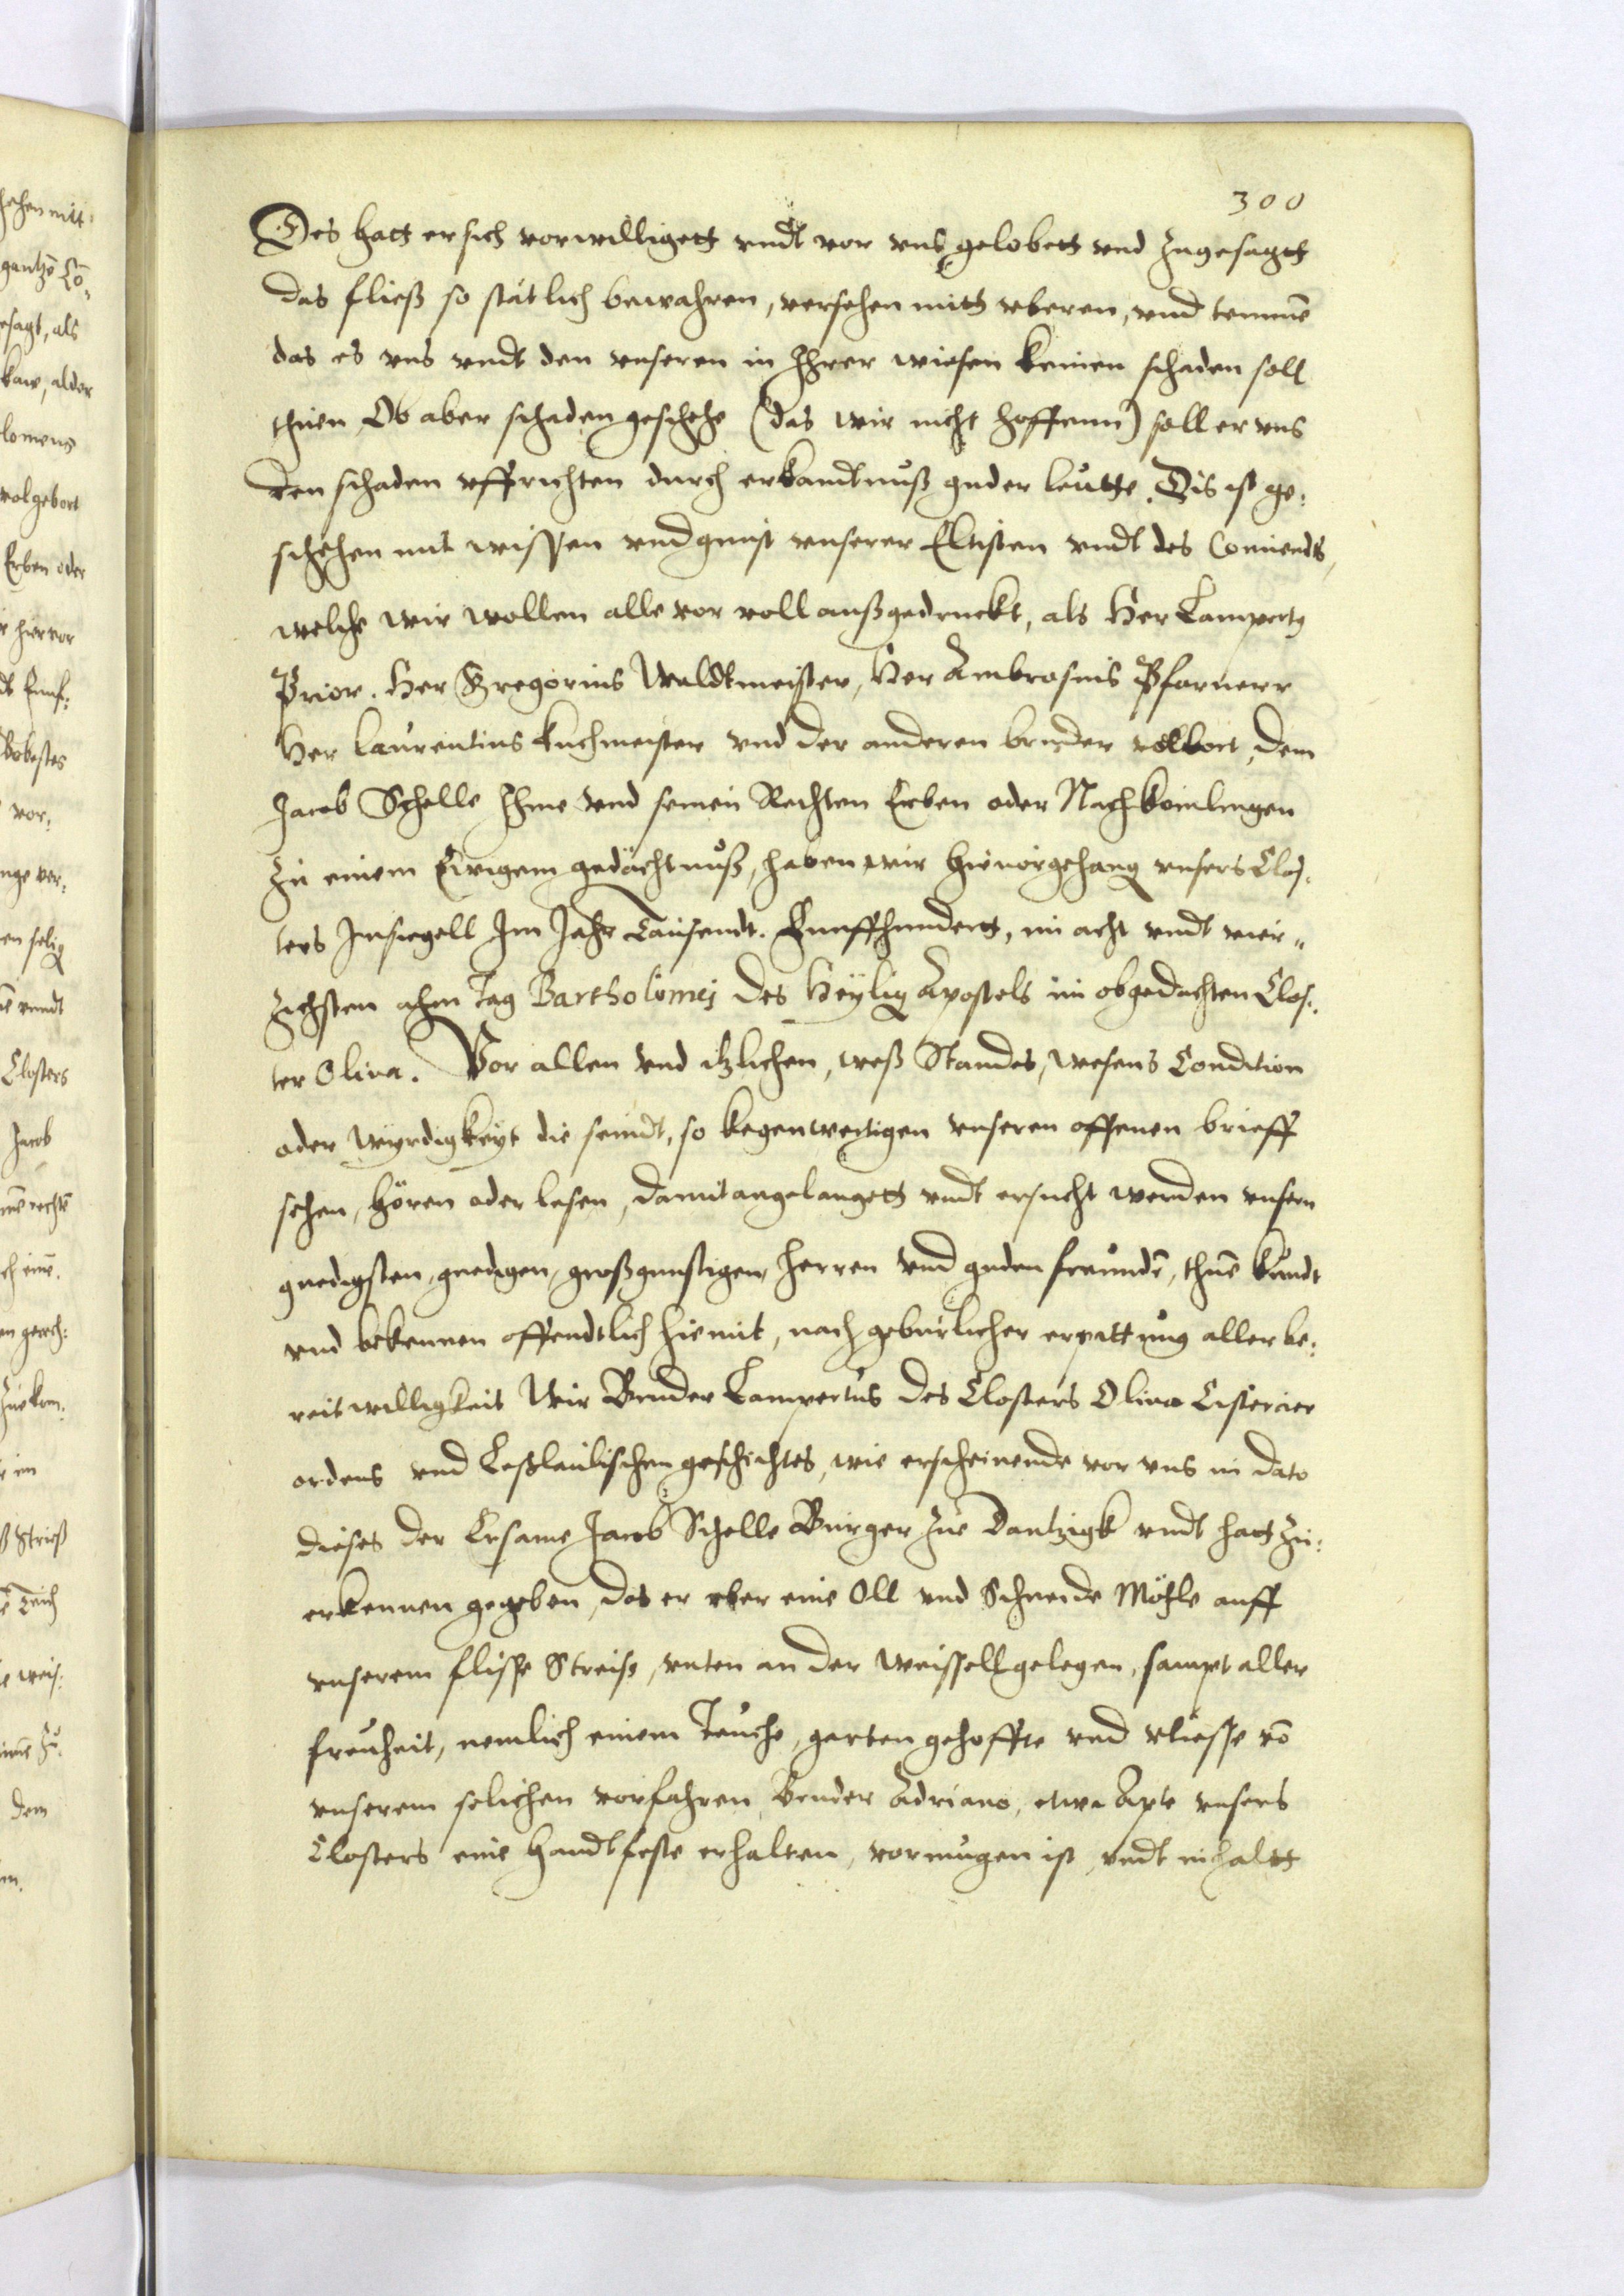 300
Des hatt er sich vorwilligett undt vor uns gelobett und zugesagtt
das fließ so stätlich bewahren, versehen mitt uberen, und temmē
das es uns undt den unseren in Ihrer wiesen keinen schaden soll
thuen Ob aber schaden geschehe (das wir nicht hoffenn) soll er uns
den schaden uffrichten durch erkandtnuß guder leutte. Dis ist ge:
schehen mit wissen und gunst unserer Eltisten undt des Convendts,
welche wir wollen alle vor voll außgedruckt, als Her Lampertg
Prior. Her Gregorius Waldtmeister, Her Ambrosius Pfarnerr
Her Laurentius Kuchmeister und der anderen bruder volbort, dem
Jacob Schelle Ihme und seinen Rechten Erben oder Nachkömlingen
Zu einem Ewigem gedächtnuß, haben wir hirvorgehang unsers Clos,
ters Insiegell Im Jahr Tausendt. Funffhundert, im acht undt vier„
zichsten ahm Tag Bartholomej des Heÿlig Apostels im obgedachten Clos:
ter Oliva. Vor allen und itzlichen, weß Standes, wesens Condition
oder wÿrdigkeÿt die seindt, so kegenwertigen unseren offenen brieff
sehen, hören oder lesen, damit angelangett undt ersucht werden unsern
gnedigsten, gnedigen, großgunstigen Herren und guden freundē, thuē kundt
und bekennen offendtlich hiemit, nach geburlicher erpittung aller be:
reitwilligkeit Wir Bruder Lampertus des Closters Oliva Cistercier
ordens und Leßlauischen geschichtes, wie erscheinende vor uns in dato
dieses der Ersame Jacob Schelle Burger zue Dantzigk undt hatt zu:
erkennen gegeben, das er uber eine Oll und Schneide Möhle auff
unserem flisse Streiß, unten an der Weissell gelegen, sampt aller
freyheit, nemlich einem Teuche, garten gehoffte und vliesse vō
unserem selichen vorfahren, Bruder Adriano, etwa Apte unsers
Closters eine Handtfeste erhalten, vormugen ist, undt inhaltt